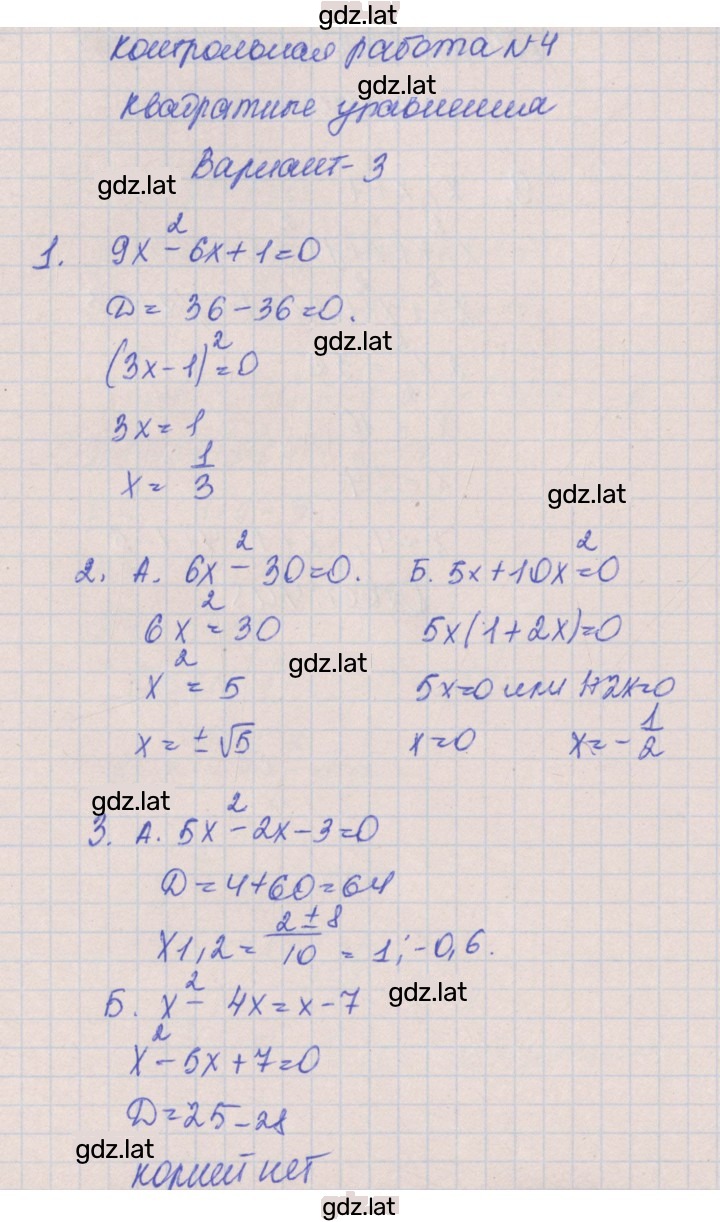 gdz.lat
Контрольная работа №4
gdz.lat
Квадратные уравнения
Вариант-3
gdz.lat
1. 9x² - 6x + 1 = 0
D = 36 - 36 = 0.
gdz.lat
(3x - 1)² = 0
3x = 1
x = 1/3
gdz.lat
2. А. 6x² - 30 = 0. Б. 5x + 10x² = 0
6x² = 30 5x(1 + 2x) = 0
gdz.lat
x² = 5 5x = 0 или 1+2x=0
x = ±√5 x = 0 x = -1/2
gdz.lat
3. А. 5x² - 2x - 3 = 0
D = 4 + 60 = 64
x1,2 = (2 ± 8)/10 = 1; -0,6.
gdz.lat
Б. x² - 4x = x - 7
x² - 5x + 7 = 0
D = 25 - 28
gdz.lat
корней нет
gdz.lat